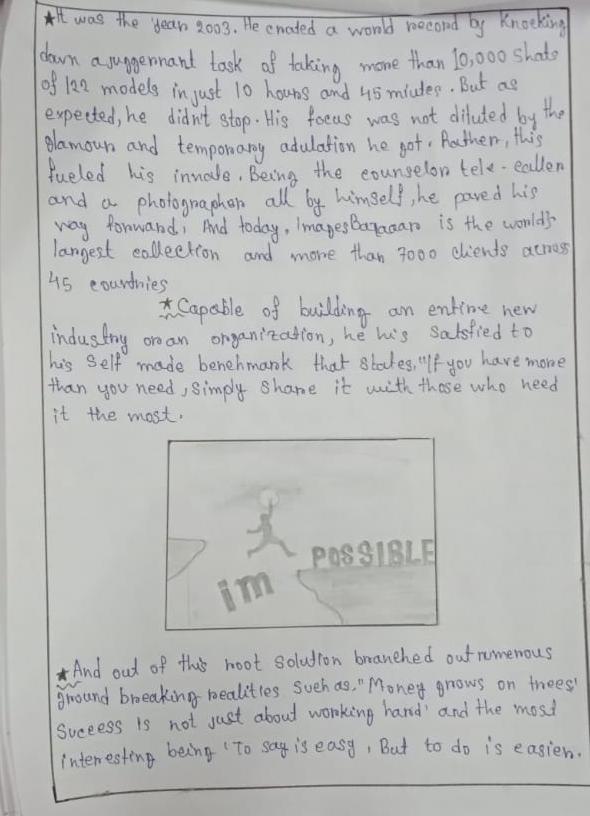 ★It was the year 2003. He cnated a world record by knocking
down a juggernant task of taking more than 10,000 Shots
of 122 models in just 10 hours and 45 miutes. But as
expected, he didn't stop. His focus was not diluted by the
glamour and temporary adulation he got. Rather, this
fueled his innads. Being the counselor tele-caller
and a photographer all by himself, he paved his
way forward, And today, ImagesBazaaar is the world's
largest collection and more than 7000 clients across
45 countries
★Capable of building an entire new
industry or an organization, he his Satsfied to
his Self made benchmark that states, "If you have more
than you need, simply share it with those who need
it the most.
im POSSIBLE
★And out of this root solution branched out numerous
ground breaking realities such as, "Money grows on trees'
Success is not just about working hard' and the most
interesting being 'To say is easy, But to do is easier.